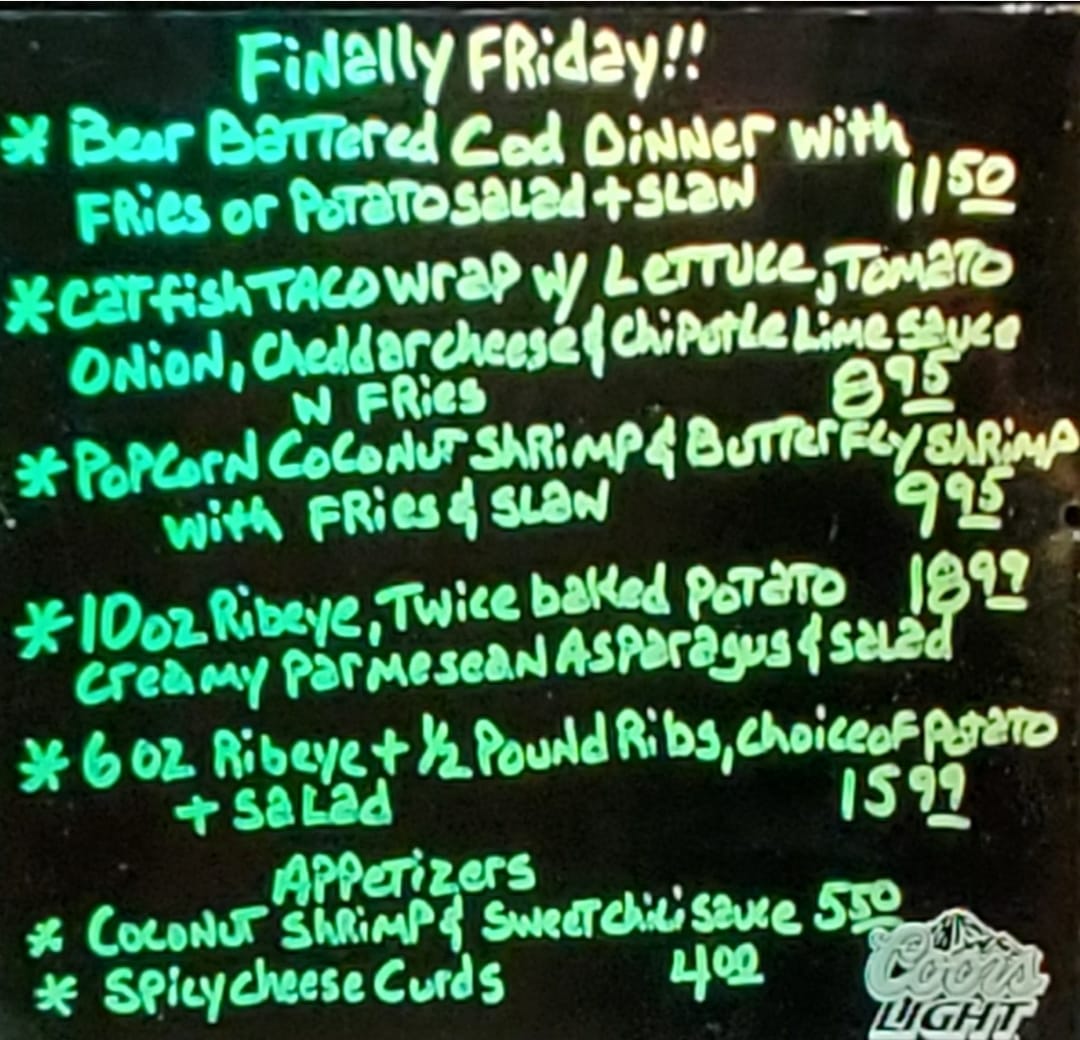 Finally Friday!!
* Beer Battered Cod Dinner with
Fries or Potato salad + slaw 11 50
* Catfish Taco wrap w/ Lettuce, Tomato
Onion, Cheddar cheese & Chipotle Lime sauce
w Fries 8 95
* Popcorn Coconut Shrimp & Butterfly Shrimp
with Fries & slaw 9 95
* 10 oz Ribeye, Twice baked potato 18 99
creamy Parmesean Asparagus & salad
* 6 oz Ribeye + 1/2 Pound Ribs, choice of potato
+ salad 15 99
Appetizers
* Coconut Shrimp & Sweet chili sauce 5 50
* Spicy cheese Curds 4 00
Coors
LIGHT